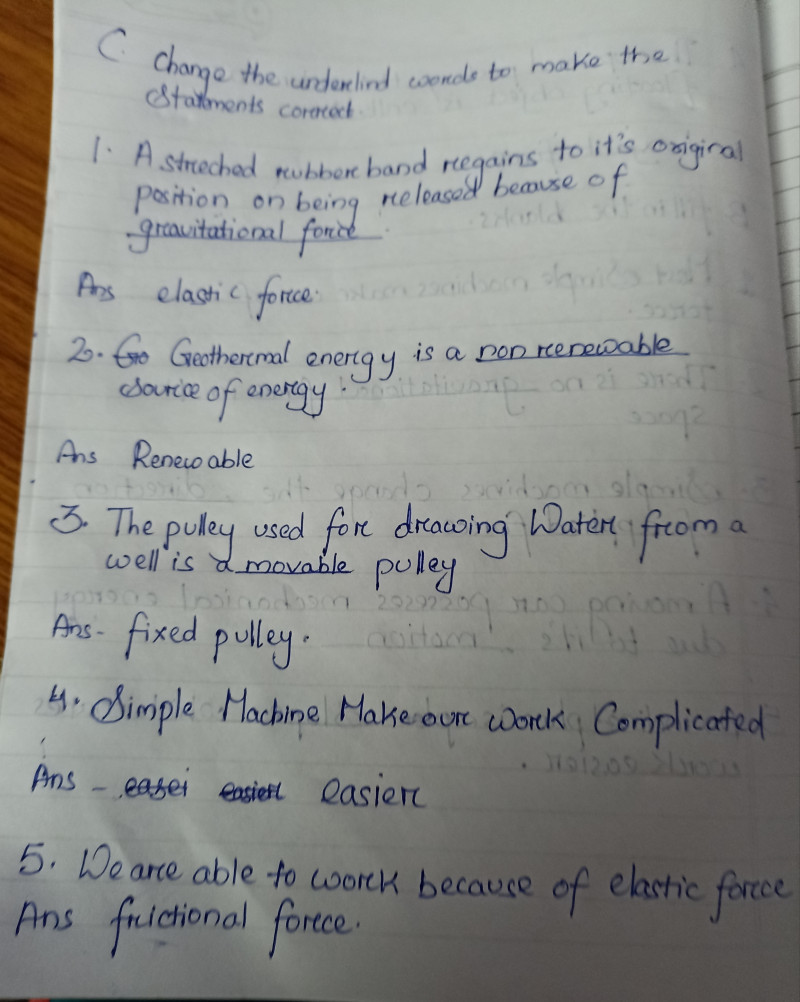 C. Change the underlind words to make the
Statments correct.
1. A streched rubber band regains to it's original
position on being released because of
gravitational force.
Ans elastic force.
2. Geothermal energy is a non renewable
source of energy.
Ans Renewable
3. The pulley used for drawing Water from a
well is a movable pulley
Ans- fixed pulley.
4. Simple Machine Make our work Complicated
Ans - easier
5. We are able to work because of elastic force
Ans frictional force.